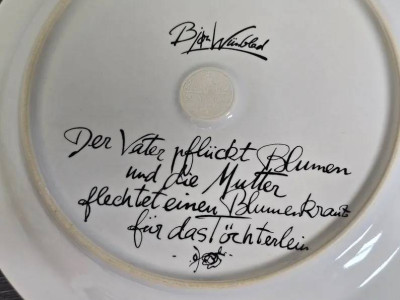 Bjørn Wiinblad
Der Vater pflückt Blumen
und die Mutter
flechtet einen Blumenkranz
für das Töchterlein